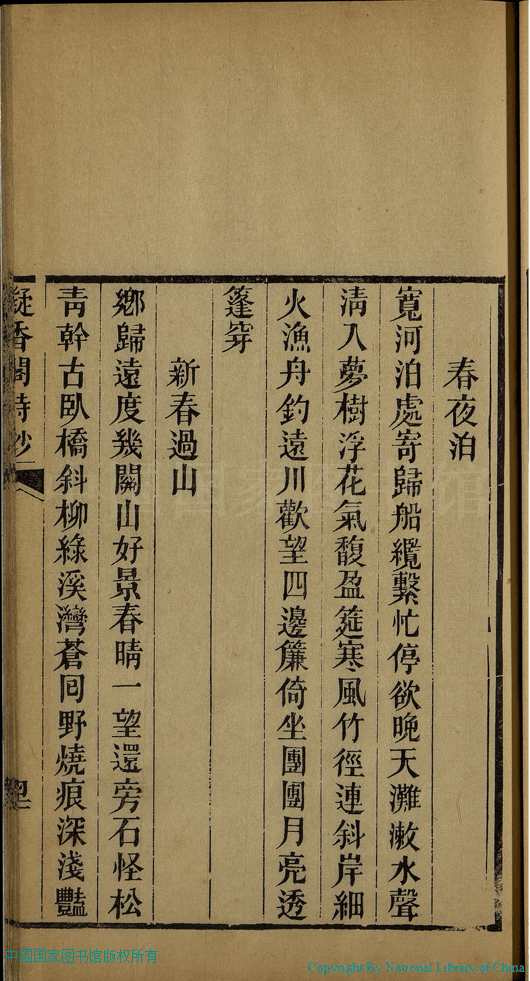 春夜泊
寬河泊處寄歸船纜繫忙停欲晚天灘漱水聲
清入夢樹浮花氣馥盈筵寒風竹徑連斜岸細
火漁舟釣遠川歡望四邊簾倚坐團團月亮透
篷穿
新春過山
鄉歸遠度幾關山好景春晴一望還旁石怪松
靑幹古臥橋斜柳綠溪灣蒼同野燒痕深淺豔
凝香閣詩鈔
中国国家图书馆版权所有
Copyright By National Library of China